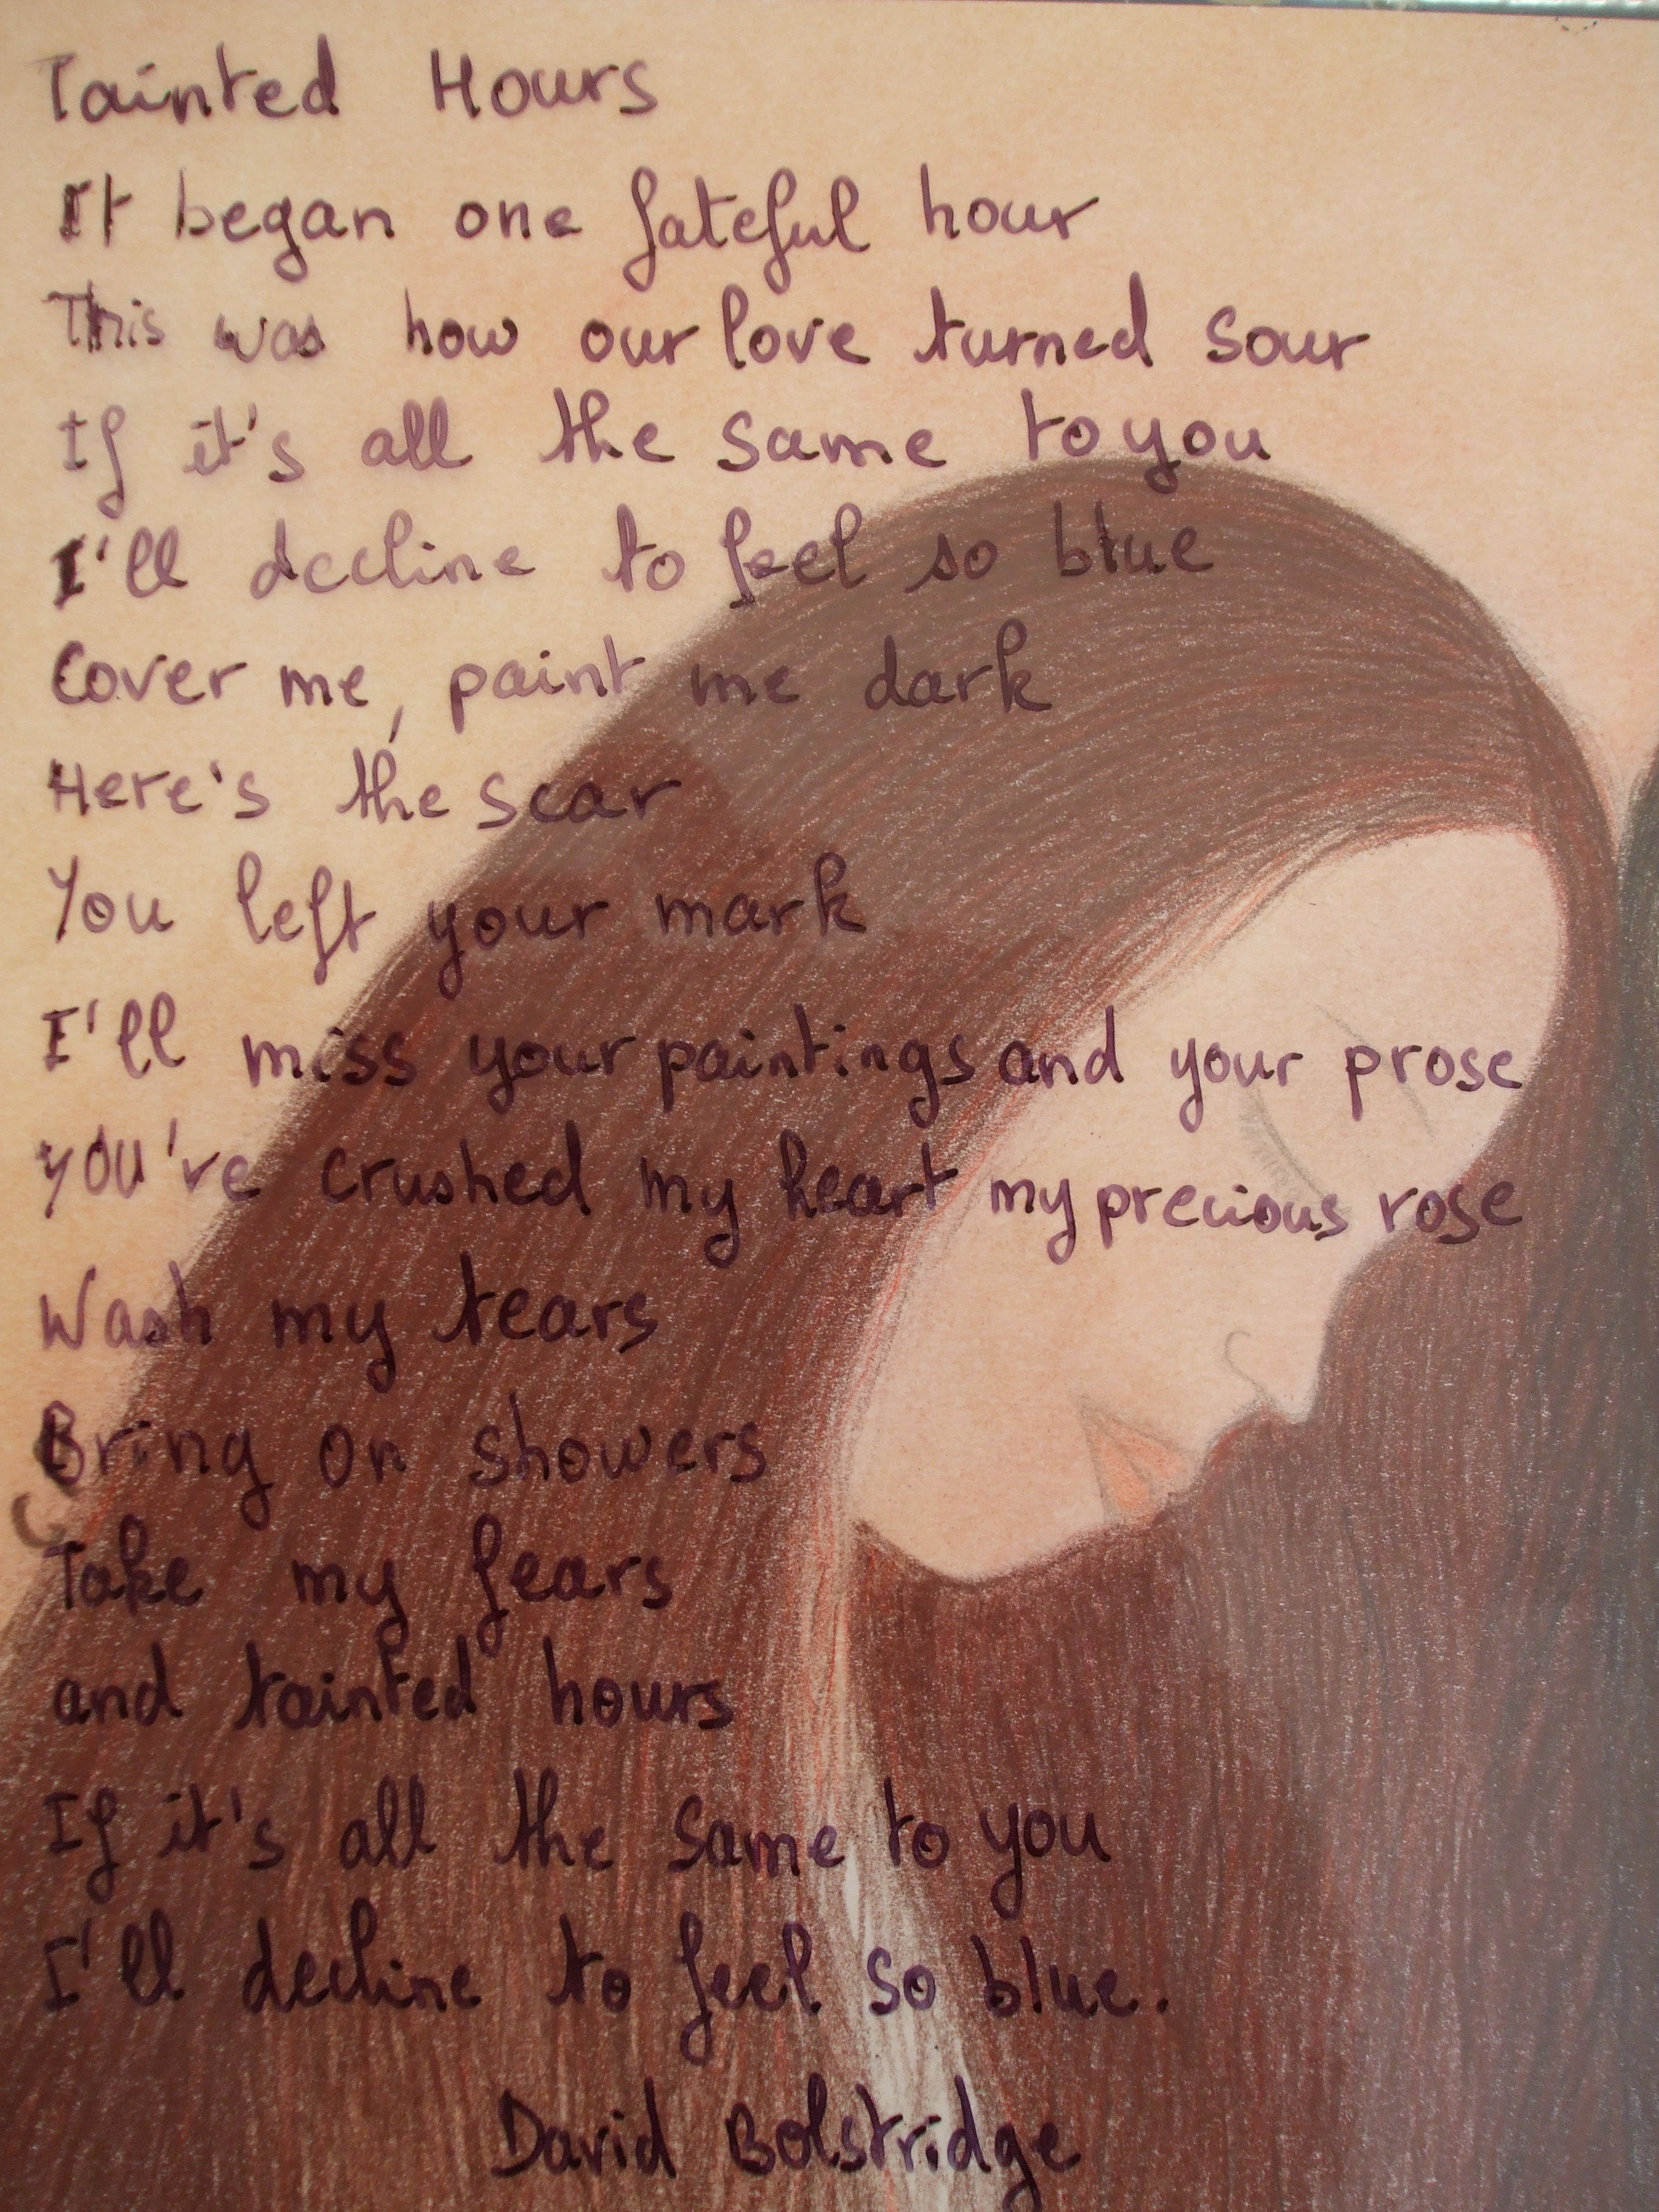 Tainted Hours
It began one fateful hour
This was how our love turned sour
If it's all the same to you
I'll decline to feel so blue
Cover me, paint me dark
Here's the scar
You left your mark
I'll miss your paintings and your prose
You've crushed my heart my precious rose
Wash my tears
Bring on showers
Take my fears
and tainted hours
If it's all the same to you
I'll decline to feel so blue.
David Bolstridge